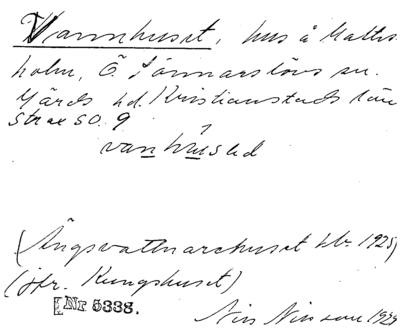 Vannhuset, hus å Mattes
holm, Ö. Sönnarslövs sn.
Gärds hd. Kristianstads län
strax SO. 9
van húsəd
(Ångvattnarehuset hbr. 1925)
(jfr. Kungshuset)
[Nr 5338.
Nils Nilsson 1929